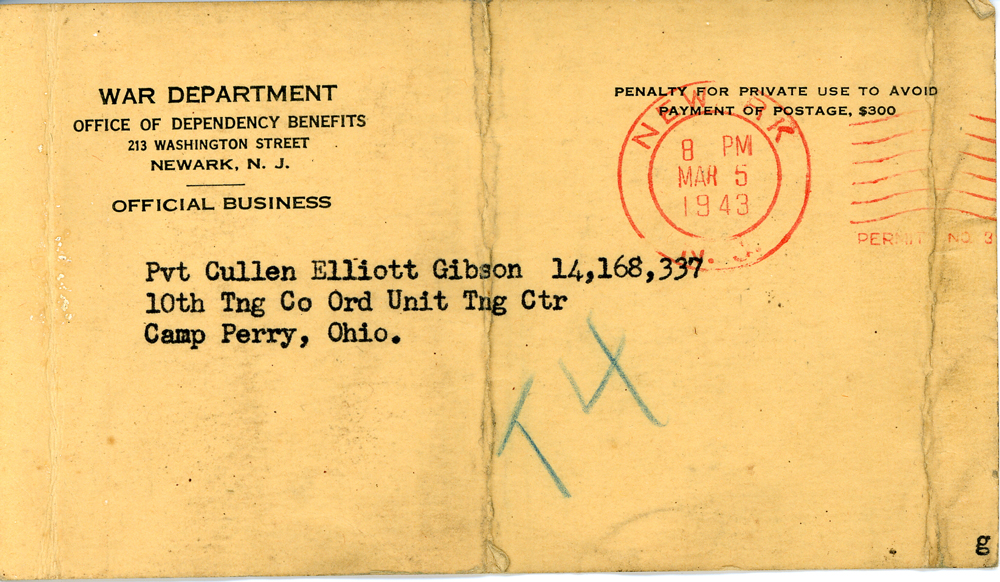 WAR DEPARTMENT
OFFICE OF DEPENDENCY BENEFITS
213 WASHINGTON STREET
NEWARK, N. J.
OFFICIAL BUSINESS
PENALTY FOR PRIVATE USE TO AVOID
PAYMENT OF POSTAGE, $300
NEW RK
8 PM
MAR 5
1943
N. J.
PERMIT NO. 3
Pvt Cullen Elliott Gibson 14,168,337
10th Tng Co Ord Unit Tng Ctr
Camp Perry, Ohio.
T 4
g